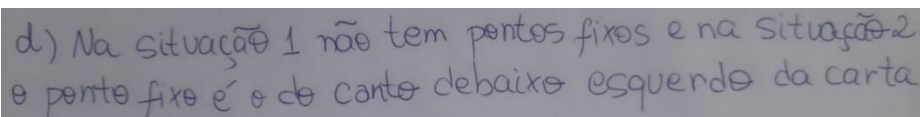 d) Na situação 1 não tem pontos fixos e na situação 2
o ponto fixo é o do canto debaixo esquerdo da carta